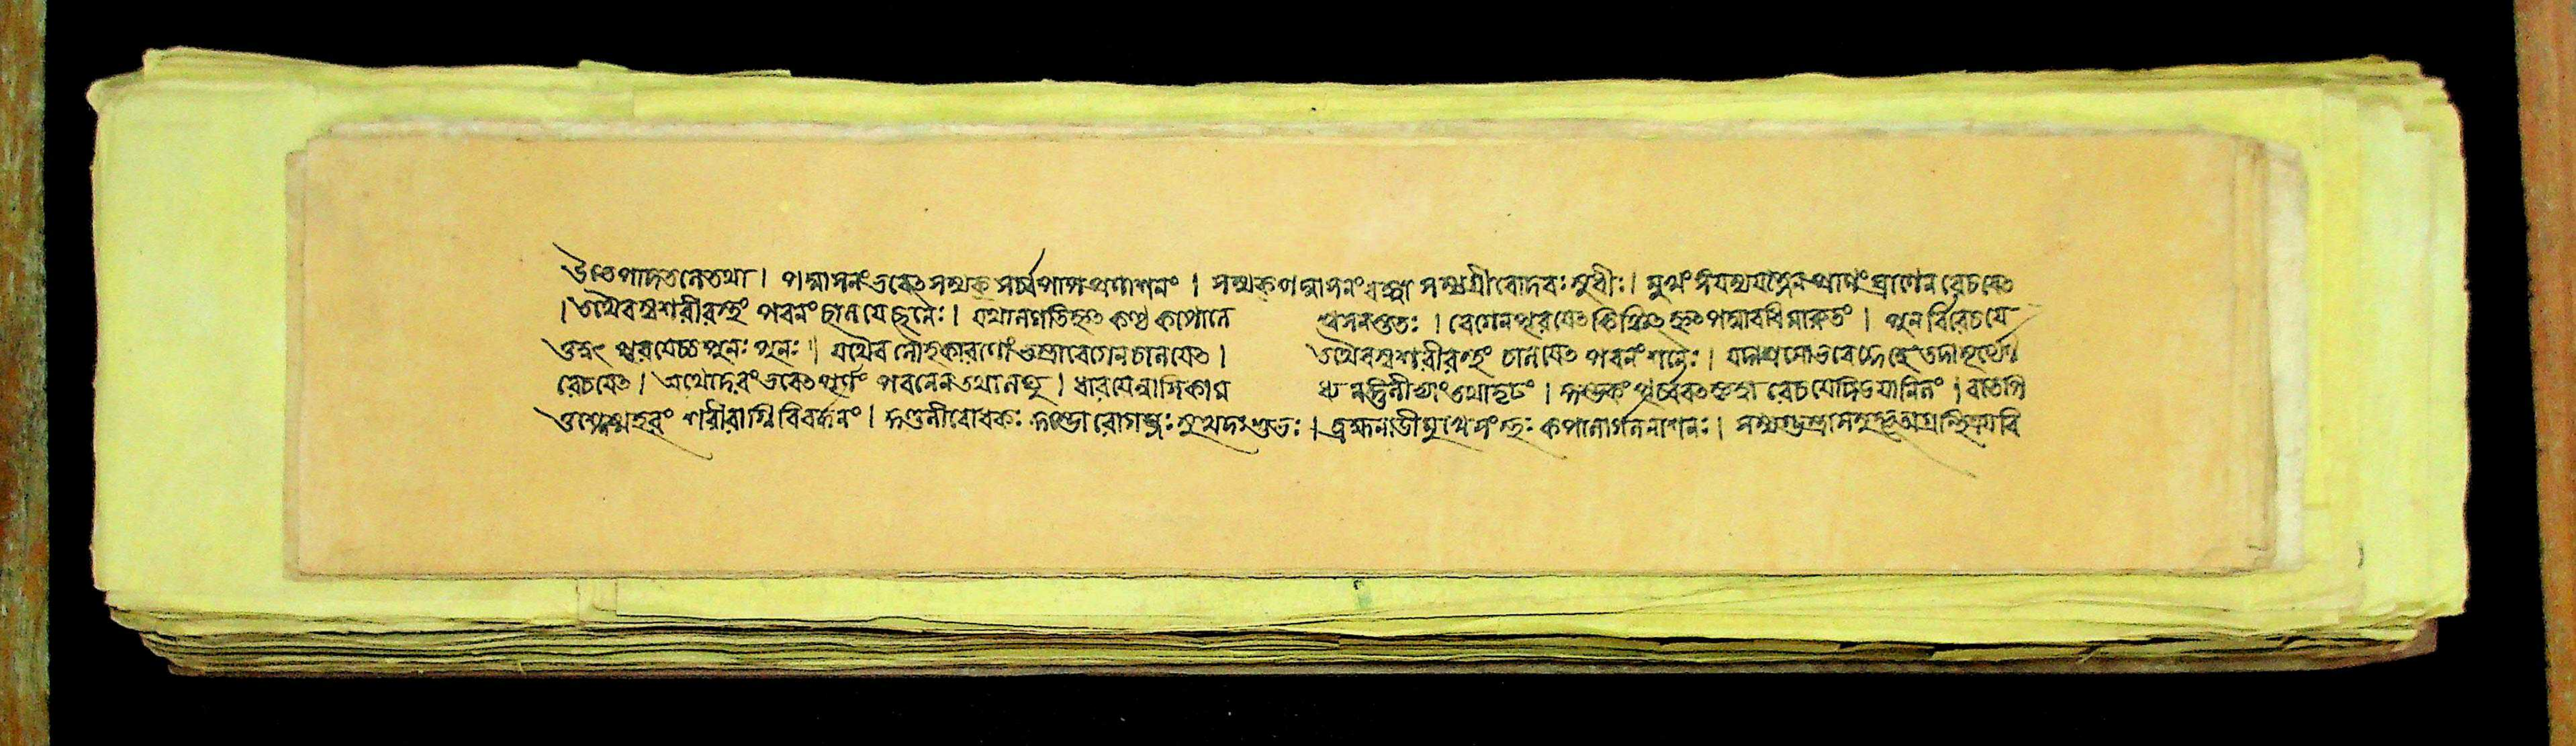 উভেপাদতলেতথা। পদ্মাসনংভবেত্সম্যক্ সর্ব্বপাপপ্রণাশনং। সম্যক্পদ্মাসনংবদ্ধ্বা সমগ্রীবোদরঃসুধীঃ। মুখং সংযম্যযত্নেনপ্রাণংঘ্রাণেন রেচযেত্
। যথালগতিহৃত্ কণ্ঠ কাপালে শ্বসনন্ততঃ। বেগেনপূরযেত্ কিঞ্চিত্ হৃত্পদ্মাবধিমারুতং। পুনর্বিরেচযে
ত্তদ্বত্ পূরযেচ্চ পুনঃ পুনঃ। যথৈব লৌহকারাণাং ভস্ত্রাবেগেনচালযেত্। তথৈবস্বশরীরস্থং চালযেত্ পবনংশনৈঃ। যদাশ্রমোভবেদ্দেহে তদাসূর্যেণ
রেচযেত্। যথোদরংভবেত্ পূর্ণং পবনেনতথালঘু। ধারযেন্নাসিকাম ধ্য তর্জনীভ্যাং তথাদৃঢং। কুম্ভকং পূর্ব্ববত্কৃত্বা রেচযেদিডযানিলং। বাতপি
ত্তশ্লেষ্মহরং শরীরাগ্নিবিবর্দ্ধনং। কুণ্ডলীবোধকঃ রোগঘ্নঃ সুখদঃশুভঃ। ব্রহ্মনাডীমুখেসংস্থঃ কপালার্গলনাশনঃ।